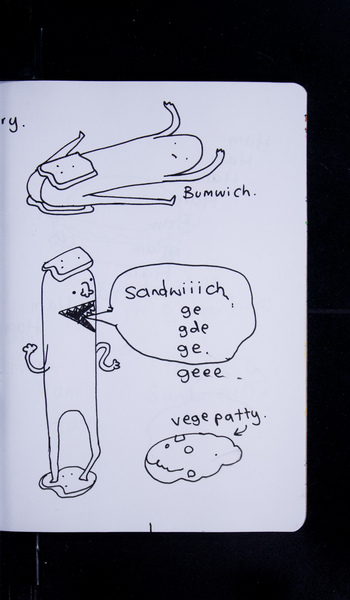 ry.
Bumwich.
Sandwiiich
ge
gde
ge.
geee.
vege patty.